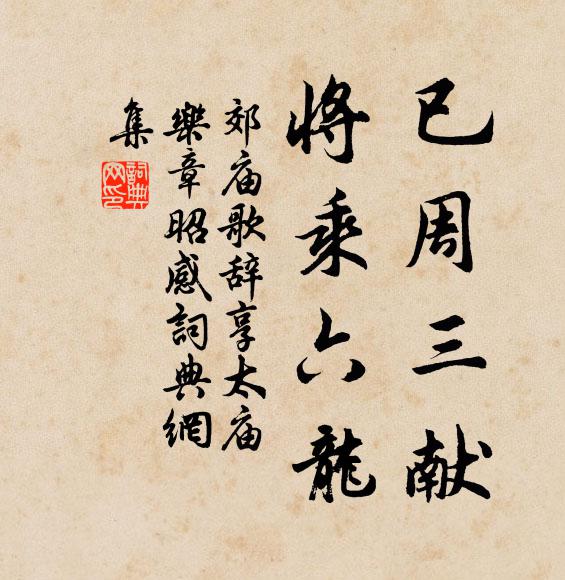 已周三献
将乘六龍
郊庙歌辞享太庙
樂章昭感詞典網
集
詞典
网印